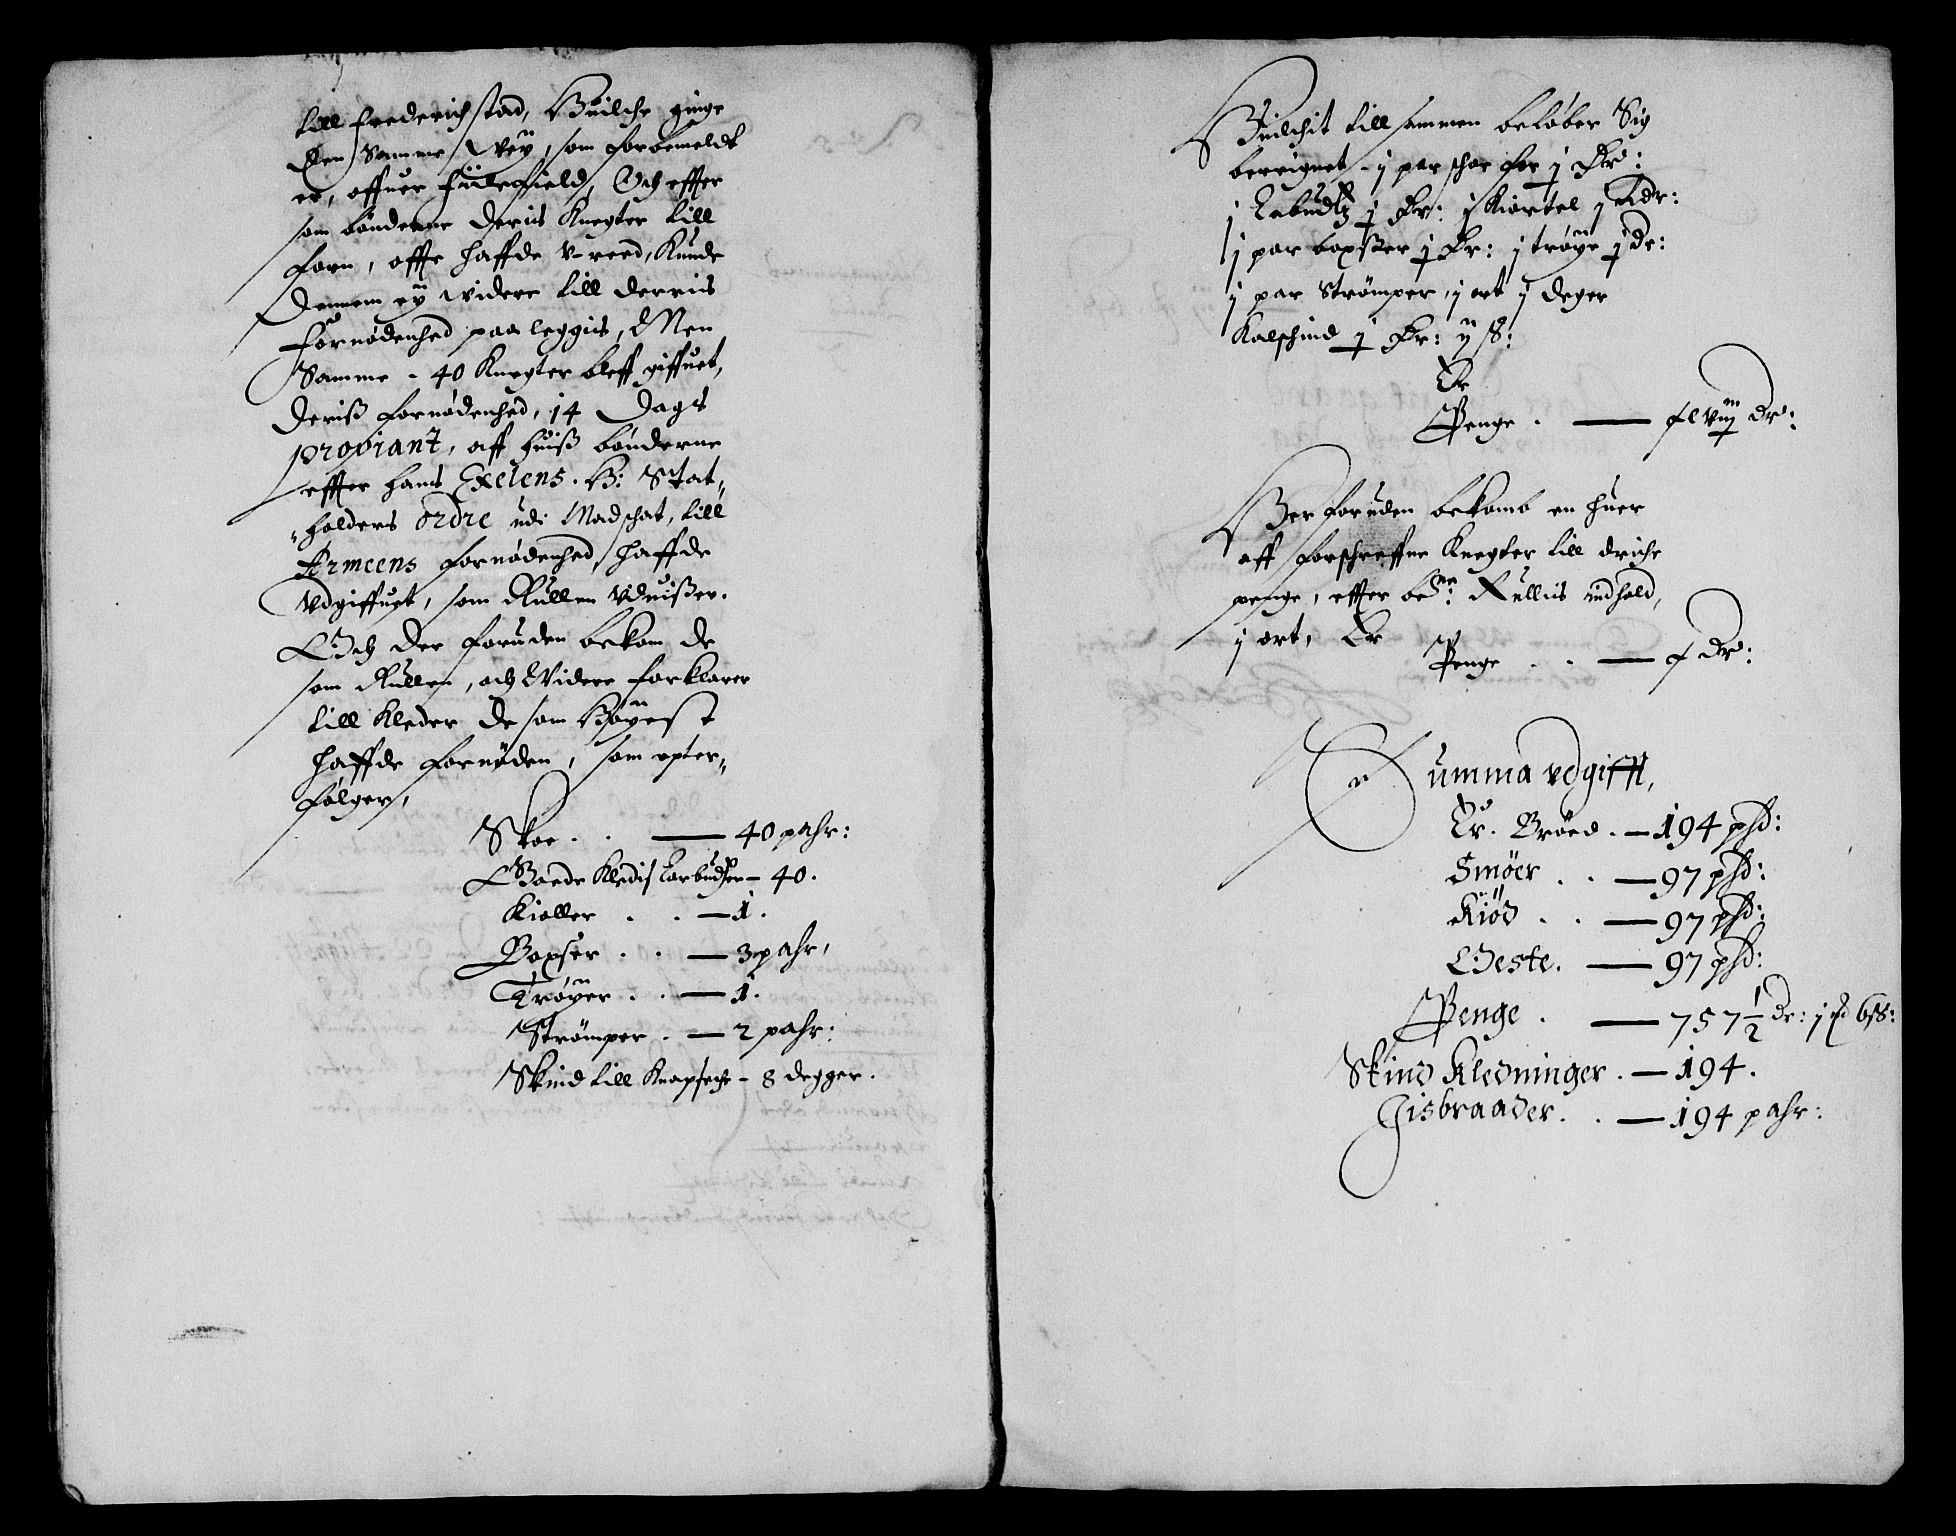 till Frederichstad, Huilche ginge
den Samme Vey, som forbemeldt
er, offuer Fillefield, Och effter
som bønderne deris Knegter till
forn, offte haffde V-reed, Kunde
dennem eÿ videre till derris
fornødenhed paaleggis, Men
Samme - 40 Knegter bleff giffuet,
deris fornødenhed, 14 Dags
proviant, aff huiss bønderne
effter hans Exelens. H: Stat„
„holders Ordre udi Madschat, till
Armeens fornødenhed haffde
Vdgiffuet, som Rullen Vduisser.
Och der foruden bekom de
som Rullen, och Videre forklarer
till Kleder de som Høyest
haffde fornøden, som epter„
følger,
Skoe . . — 40 pahr:
Boede Kledis Larbudtzer - 40.
Kioller . . — 1.
Boxser . . — 3 pahr,
Trøyer . . — 1.
Strømper . — 2 pahr:
Skind till Knapseche - 8 degger.
Huilchit till sammen beløber Sig
bereignet - j par schoe for j Dr:
j Labudtz j Dr: j Kiortel j Rdr:
j par boxsser j Dr: j trøye j dr:
j par Strømper, j ort j deger
Kalschind j Dr: ij ß:
Er
Penge . — Dr:
Der foruden bekomb en huer
aff forschreffne Knegter till driche
penge, effter be:te Rullis indhold,
j ort, Er
Penge . . — Dr:
Summa vdgifft,
Er. Brøed . — 194 phd:
Smöer . . — 97 phd:
Kiöd . . — 97 phd:
Oeste. — 97 phd:
Penge . — 757 1/2 Dr: j 6ß:
Skind Kledninger . — 194.
Jisbraader. . — 194 pahr: